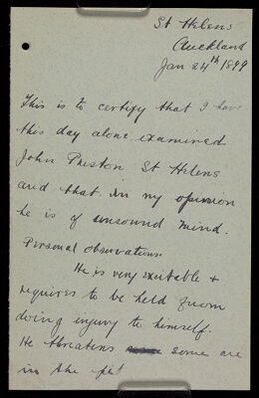 St Helens
Auckland
Jan 24th 1899
This is to certify that I have
this day alone examined
John Preston St Helens
and that in my opinion
he is of unsound mind.
Personal observations.
He is very excitable +
requires to be held from
doing injury to himself.
He threatens some are
in the